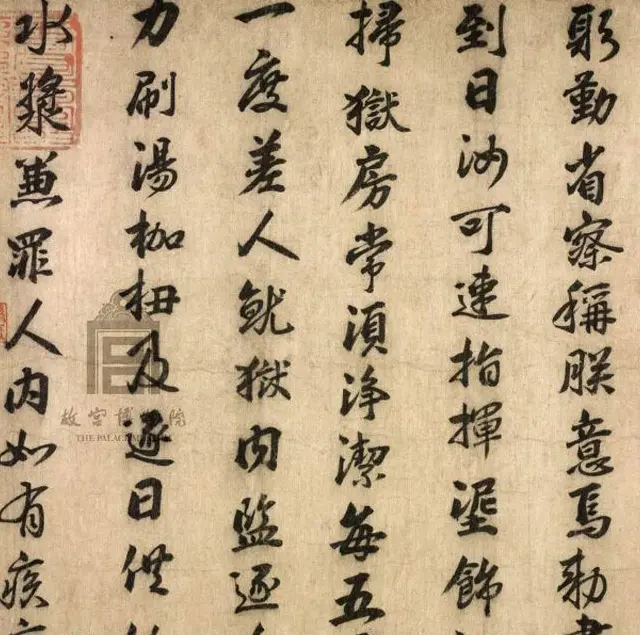 躬勤省察稱朕意焉勑書
到日汝可速指揮埿飾
掃獄房常須淨潔每五
一度差人就獄內監逐
力刷湯枷杻及逐日供
水漿兼罪人內如有疾
故宮博物院
THE PALACE MUSEUM